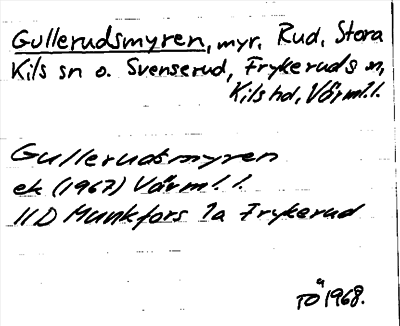 Gullerudsmyren, myr. Rud, Stora
Kils sn o. Svenserud, Frykeruds sn,
Kils hd, Värml. l.
Gullerudsmyren
ek (1967) Värml. l.
11D Munkfors 1a Frykerud
TÅ 1968.